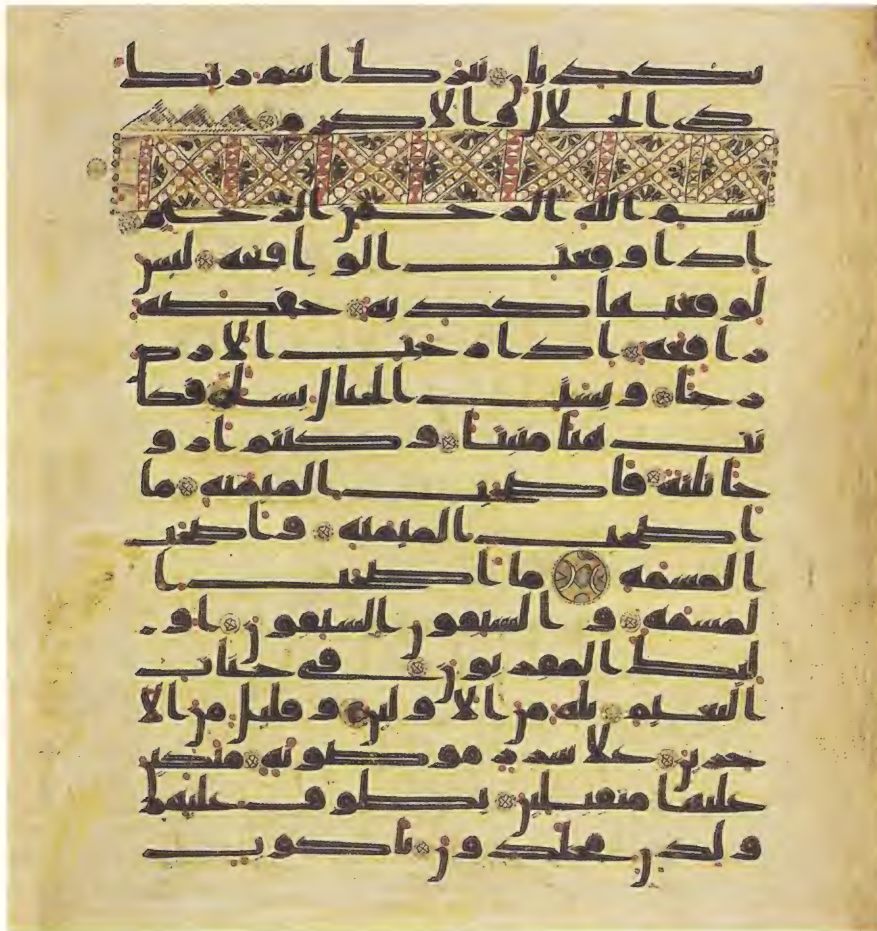 تكذبان تبرك اسم ربك
ذى الجلل و الاكرم
بسم الله الرحمن الرحيم
اذا وقعت الواقعة ليس
لوقعتها كذبة خفضة
رافعة اذا رجت الارض
رجا وبست الجبال بسا فكا
نت هبا منبثا وكنتم ازو
جا ثلثة فاصحب الميمنة ما
اصحب الميمنة واصحب
المشمة ما اصحب ا
لمشمة والسبقون السبقون او
ليك المقربون فى جنت
النعيم ثلة من الاولين وقليل من الا
خرين على سرر موضونة متكين
عليها متقبلين يطوف عليهم
ولدن مخلدون باكوب